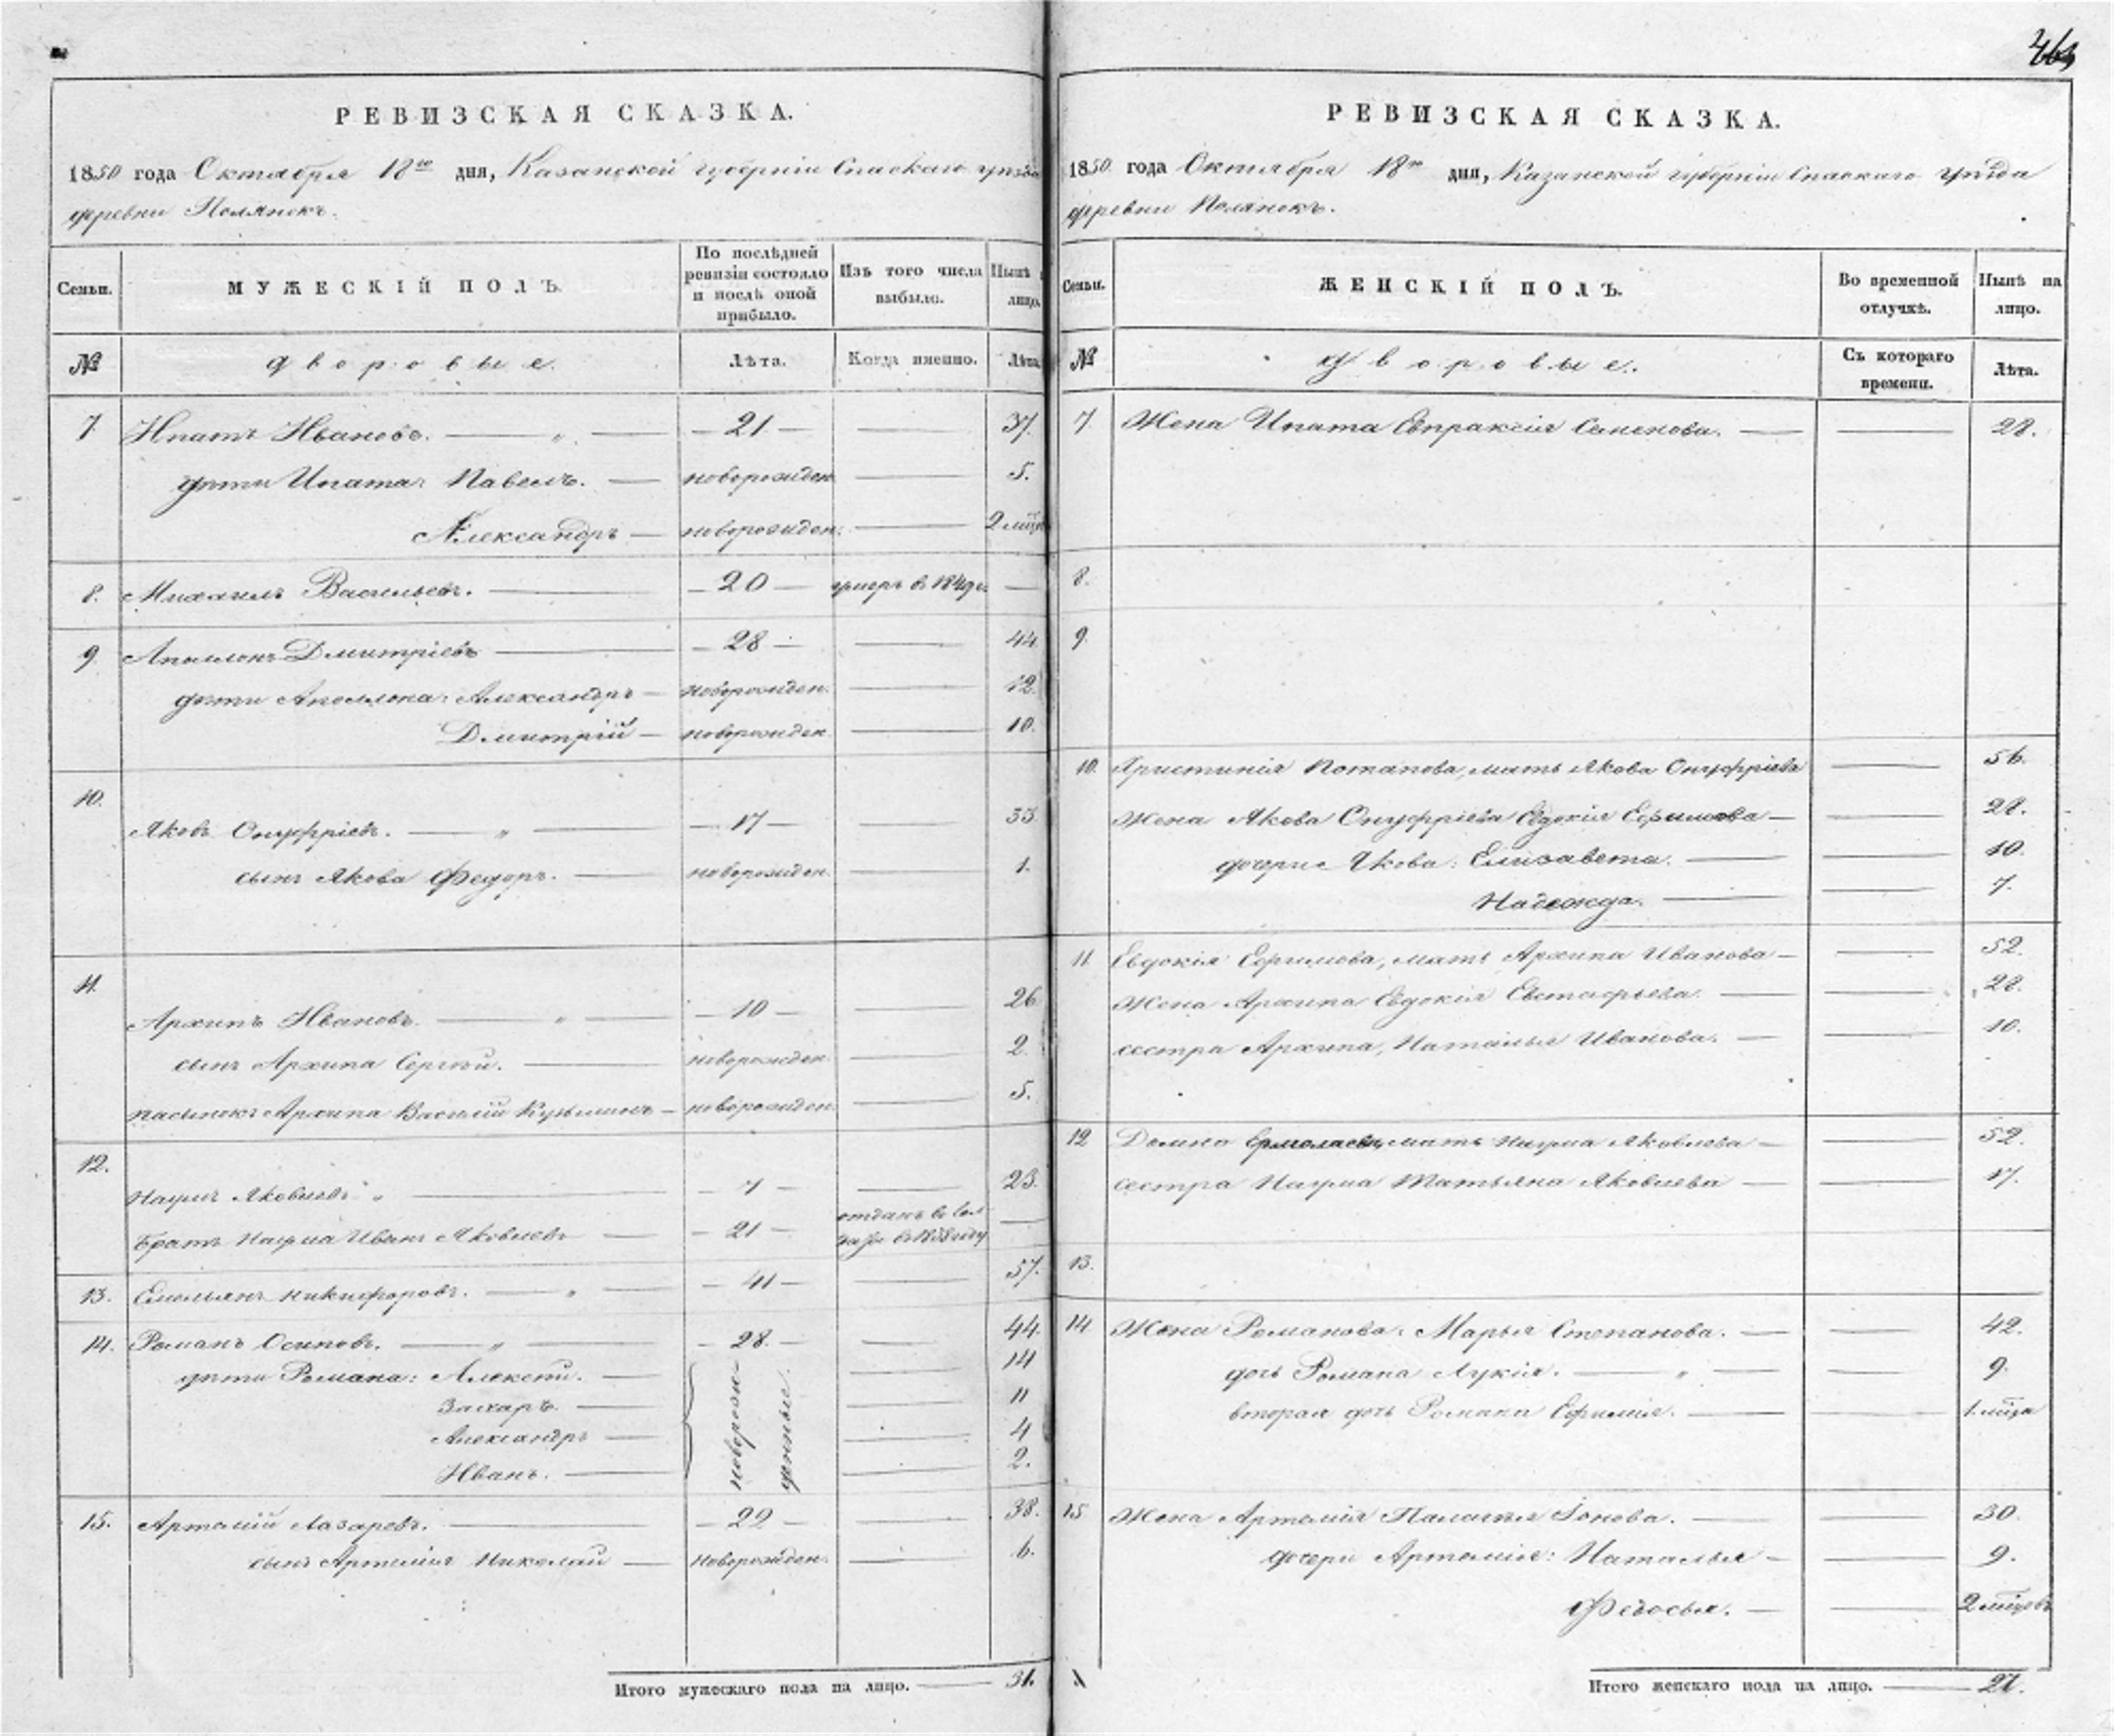 РЕВИЗСКАЯ СКАЗКА.
1850 года Октября 18го дня, Казанской губерніи Спаскаго уѣзда
деревни Полянокъ.
Семьи.
МУЖЕСКІЙ ПОЛЪ.
По послѣдней
ревизіи состояло
и послѣ оной
прибыло.
Изъ того числа
выбыло.
Нынѣ
лицо.
№
дворовые.
Лѣта.
Когда именно.
Лѣта.
7. Ипатъ Ивановъ. — " — — 21 — — 37.
дѣти Ипата: Павелъ. — новорожден. — 5.
Александръ — новорожден. — 2 мѣс
8. Михаилъ Васильевъ. — — 20 — умеръ в 1849 г. —
9. Аполонъ Дмитріевъ — — 28 — — 44.
дѣти Аполлона: Александръ — новорожден. — 12.
Дмитрій — новорожден. — 10.
10.
Яковъ Онуфріевъ. — " — — 17 — — 33.
сынъ Якова Федоръ. — новорожден. — 1.
11.
Архипъ Ивановъ. — " — — 10 — — 26.
сынъ Архипа Сергѣй. — новорожден. — 2.
пасынокъ Архипа Василій Кузьминъ — новорожден. — 5.
12.
Наумъ Яковлевъ " — — 7 — — 23.
братъ Наума Иванъ Яковлевъ — — 21 — отданъ в сол
даты в 1838 году —
13. Емельянъ Никифоровъ. — " — — 41 — — 57.
14. Романъ Осиповъ. — " — — 28. — — 44.
дѣти Романа: Алексѣй. — новорож-
денные. — 14
Захаръ. — — 11
Александръ — — 4
Иванъ. — — 2.
15. Артемій Лазаревъ. — — 22 — — 38.
сынъ Артемія Николай — новорожден. — 6.
Итого мужескаго пола на лицо. — 31.
РЕВИЗСКАЯ СКАЗКА.
1850 года Октября 18го дня, Казанской губерніи Спаскаго уѣзда
деревни Полянокъ.
Семьи.
ЖЕНСКІЙ ПОЛЪ.
Во временной
отлучкѣ.
Нынѣ на
лицо.
№
дворовые.
Съ котораго
времени.
Лѣта.
7. Жена Ипата Евпраксія Семенова. — — 28.
8.
9.
10. Христинія Потапова, мать Якова Онуфріева — 56.
Жена Якова Онуфріева Евдокія Ефимова — — 28.
дочери Якова: Елизавета. — — 10.
Надежда. — — 7.
11. Евдокія Ефимова, мать Архипа Иванова — — 52.
Жена Архипа Евдокія Евстафьева. — — 28.
сестра Архипа, Наталья Иванова. — — 10.
12 Домна Ермолаева, мать Наума Яковлева — — 52.
сестра Наума Татьяна Яковлева — — 17.
13.
14 Жена Романова: Марья Степанова. — — 42.
дочь Романа Лукія. — " — — 9.
вторая дочь Романа Ефимія. — — 1 мѣца
15 Жена Артемія Палагея Іонова. — — 30.
дочери Артемія: Наталья — — 9.
Федосья. — — 2 мѣцовъ
Итого женскаго пола на лицо. —